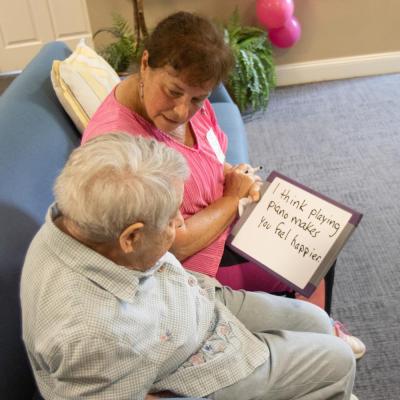 I think playing
piano makes
you feel happier.